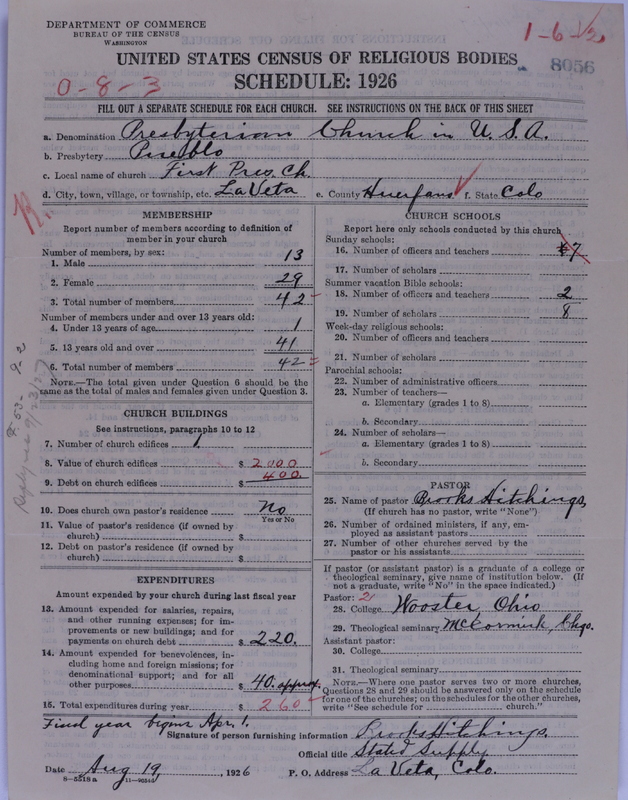 DEPARTMENT OF COMMERCE
BUREAU OF THE CENSUS
WASHINGTON
8056
UNITED STATES CENSUS OF RELIGIOUS BODIES
SCHEDULE: 1926
0-8-3
FILL OUT A SEPARATE SCHEDULE FOR EACH CHURCH. SEE INSTRUCTIONS ON THE BACK OF THIS SHEET
a. Denomination Presbyterian Church in U. S. A.
b. Presbytery Pueblo
c. Local name of church First Pres. Ch.
d. City, town, village, or township, etc. La Veta e. County Huerfano f. State Colo
MEMBERSHIP
Report number of members according to definition of
member in your church
Number of members, by sex:
1. Male 13
2. Female 29
3. Total number of members 42
Number of members under and over 13 years old:
4. Under 13 years of age 1
5. 13 years old and over 41
6. Total number of members 42
NOTE.—The total given under Question 6 should be the
same as the total of males and females given under Question 3.
CHURCH BUILDINGS
See instructions, paragraphs 10 to 12
7. Number of church edifices 1
8. Value of church edifices $ 2000
9. Debt on church edifices $ 400.
10. Does church own pastor's residence No
Yes or No
11. Value of pastor's residence (if owned by
church) $
12. Debt on pastor's residence (if owned by
church) $
EXPENDITURES
Amount expended by your church during last fiscal year
13. Amount expended for salaries, repairs,
and other running expenses; for im-
provements or new buildings; and for
payments on church debt $ 220.
14. Amount expended for benevolences, in-
cluding home and foreign missions; for
denominational support; and for all
other purposes $ 40. approx.
15. Total expenditures during year $ 260
CHURCH SCHOOLS
Report here only schools conducted by this church
Sunday schools:
16. Number of officers and teachers 7
17. Number of scholars
Summer vacation Bible schools:
18. Number of officers and teachers 2
19. Number of scholars 8
Week-day religious schools:
20. Number of officers and teachers
21. Number of scholars
Parochial schools:
22. Number of administrative officers
23. Number of teachers—
a. Elementary (grades 1 to 8)
b. Secondary
24. Number of scholars—
a. Elementary (grades 1 to 8)
b. Secondary
PASTOR
25. Name of pastor Brooks Hitchings,
(If church has no pastor, write "None")
26. Number of ordained ministers, if any, em-
ployed as assistant pastors
27. Number of other churches served by the
pastor or his assistants
If pastor (or assistant pastor) is a graduate of a college or
theological seminary, give name of institution below. (If
not a graduate, write "No" in the space indicated.)
Pastor: 2
28. College Wooster, Ohio
29. Theological seminary McCormick, Chgo.
Assistant pastor:
30. College
31. Theological seminary
NOTE.—Where one pastor serves two or more churches,
Questions 28 and 29 should be answered only on the schedule
for one of the churches; on the schedules for the other churches,
write "See schedule for church."
Fiscal year begins Apr. 1.
Signature of person furnishing information Brooks Hitchings,
Official title Stated Supply
Date Aug 19, 1926 P. O. Address La Veta, Colo.
8-5518a